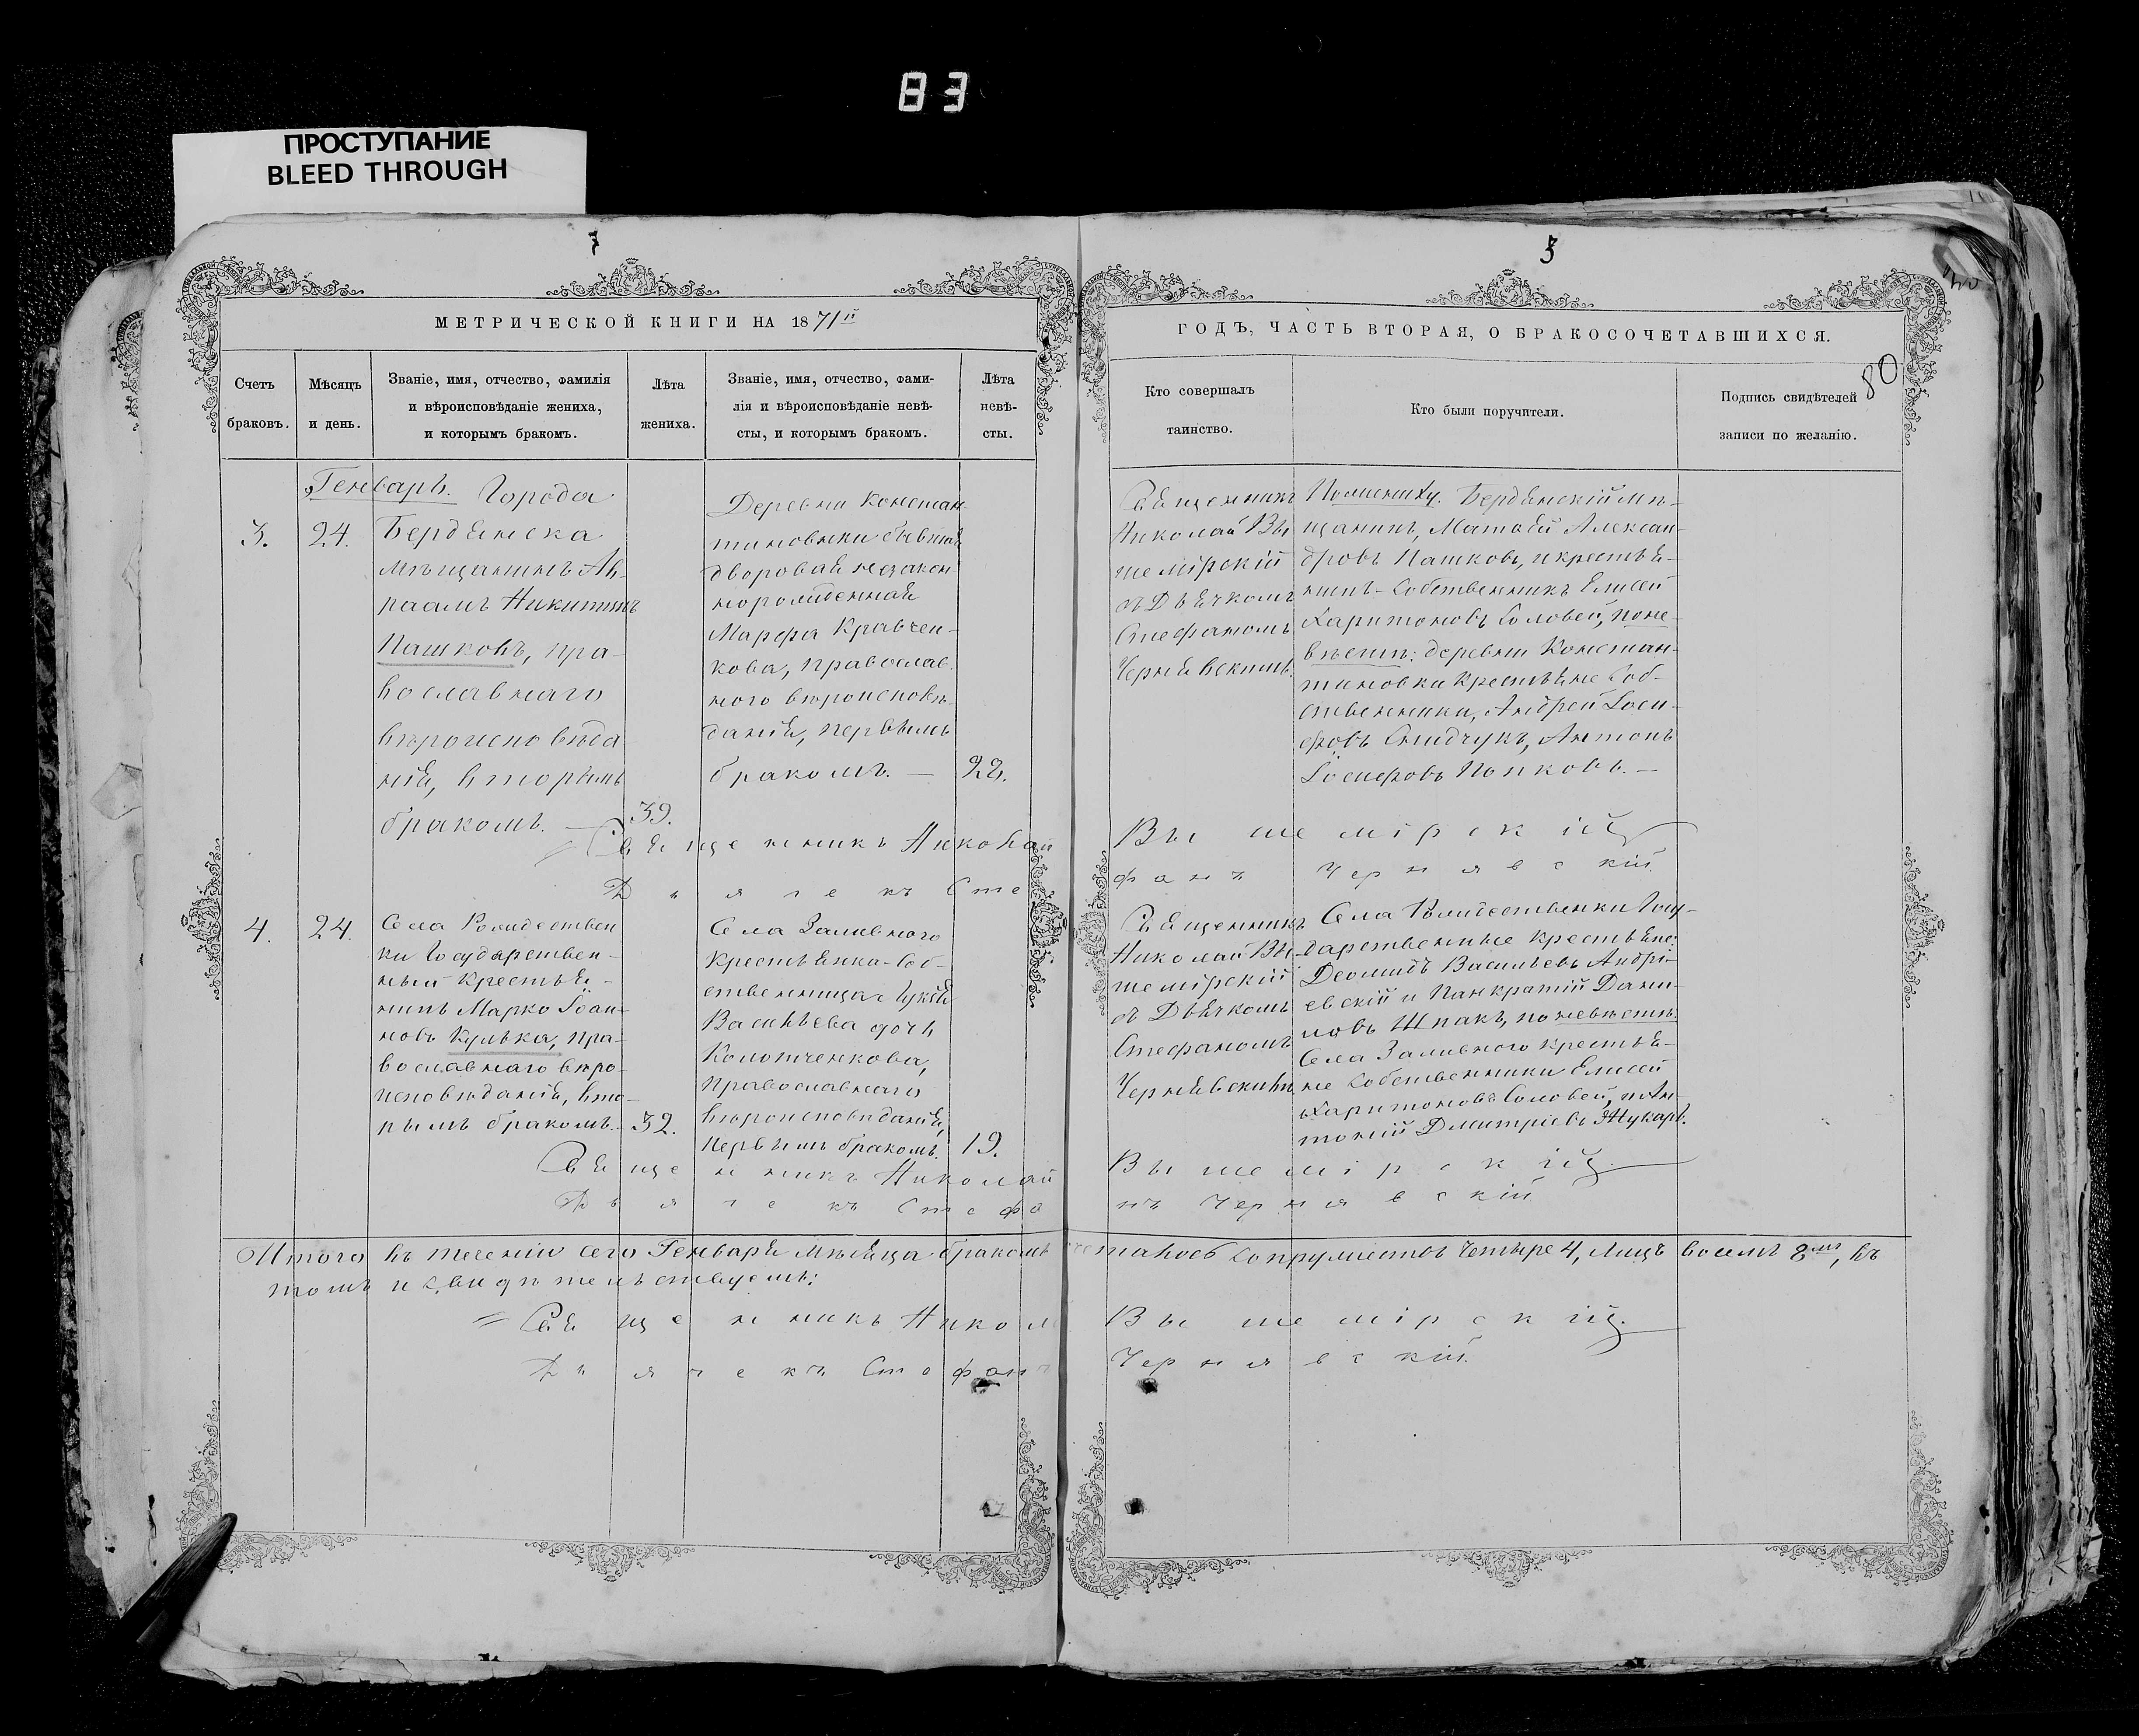 83
ПРОСТУПАНИЕ
BLEED THROUGH
МЕТРИЧЕСКОЙ КНИГИ НА 1871й
Счетъ
браковъ.
Мѣсяцъ
и день.
Званіе, имя, отчество, фамилія
и вѣроисповѣданіе жениха,
и которымъ бракомъ.
Лѣта
жениха.
Званіе, имя, отчество, фами-
лія и вѣроисповѣданіе невѣ-
сты, и которымъ бракомъ.
Лѣта
невѣ-
сты.
Генварь.
3.
24.
Города
Бердянска
мѣщанинъ Ав-
раамъ Никитинъ
Пашковъ, пра-
вославнаго
вѣроисповѣда
нія, вторымъ
бракомъ. —
39.
Деревни Констан-
тиновки бывшая
дворовая незакон-
норожденная
Марфа Кравчен-
кова, православ-
ного вѣроисповѣ-
данія, первымъ
бракомъ. —
22.
Священникъ Николай
Дьячекъ Сте
4.
24.
Села Рождествен
ки Государствен-
ный крестья-
нинъ Марко Іоан-
новъ Кулька, пра-
вославнаго вѣро-
исповѣданія, вто-
рымъ бракомъ.
32.
Села Заливного
крестьянка-Соб-
ственница
Васильева дочь
Колотченкова,
православнаго
вѣроисповѣданія,
первымъ бракомъ.
19.
Священникъ Николай
Дьячекъ Стефа
Итого въ теченіи сего Генваря мѣсяца бракомъ
томъ и свидѣтельствуемъ:
Священникъ Никол
Дьячекъ Стефанъ
ГОДЪ, ЧАСТЬ ВТОРАЯ, О БРАКОСОЧЕТАВШИХСЯ.
80
Кто совершалъ
таинство.
Кто были поручители.
Подпись свидѣтелей
записи по желанію.
Священникъ
Николай Вы
шемірскій
съ Дьячкомъ
Стефаномъ
Чернявскимъ.
По жениху: Бердянскій мѣ-
щанинъ, Матвѣй Алексан-
дровъ Пашковъ, и крестья-
нинъ-Собственникъ Елисей
Харитоновъ Соловей, по не-
вѣстѣ: деревни Констан-
тиновки Крестьяне Соб-
ственники, Андрей Іоси-
фовъ Антонъ
Іосифовъ Попковъ. —
Вышемірскій
фанъ Чернявскій.
Священникъ
Николай Вы-
шемірскій
съ Дьячкомъ
Стефаномъ
Чернявскимъ
Села Рождественки Госу-
дарственные крестьяне:
Деомидъ Васильевъ Андрі-
евскій и Панкратій Дани-
ловъ Шпакъ, по невѣстѣ:
Села Заливного крестья-
не собственники Елисей
Харитоновъ Соловей, и Ан-
тоній Дмитріевъ Жукарь.
Вышемірскій.
нъ Чернявскій
четалось супружествъ четыре 4, Лицъ восемь 8мь, въ
Вышемірскій.
Чернявскій.